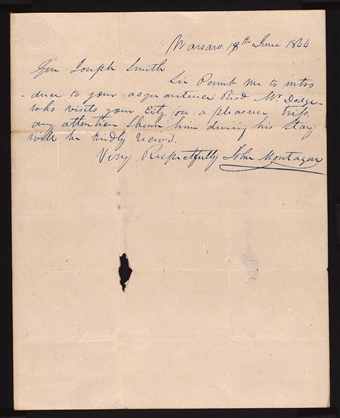 Warsaw 18th June 1844
Gen Joseph Smith
Sir Permit me to intro
-duce to your acquaintance Mr Dodge
who visits your City on a pleasure trip.
any attention Shewn him during his Stay
will be kindly
Very Respectfully John Montague